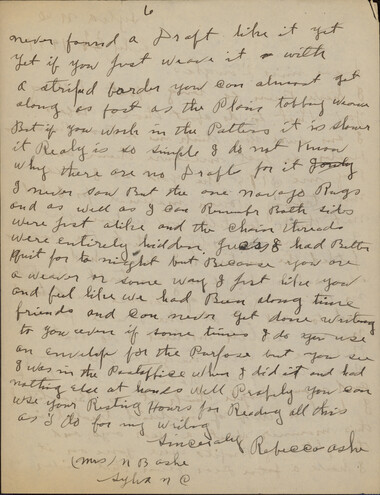 6
never found a Draft like it yet
Yet if you Just weave it with
a striped border you can almost get
along as fast as the Plain tabby weave
But if you work in the Pattern it is slower
it Realy is so simple I do not Know
why there are no Draft for it
I never saw But the one navajo Rugs
and as well as I can Rembr Both sids
were Just alike and the chain threads
were entirely hidden. Guess I had Better
quit for to night but Because you are
a weaver or some way I just like you
and feel like we had Been long time
friends and can never get done writing
to you even if some times I do use
an envelope for the Purpose but you see
I was in the Postoffice when I did it and had
nothing else at hand Well Probly you can
use your Resting Hours for Reading all this
as I do for my writing
Sincerely Rebecca Ashe
(Mrs) N B Ashe
Sylva N C